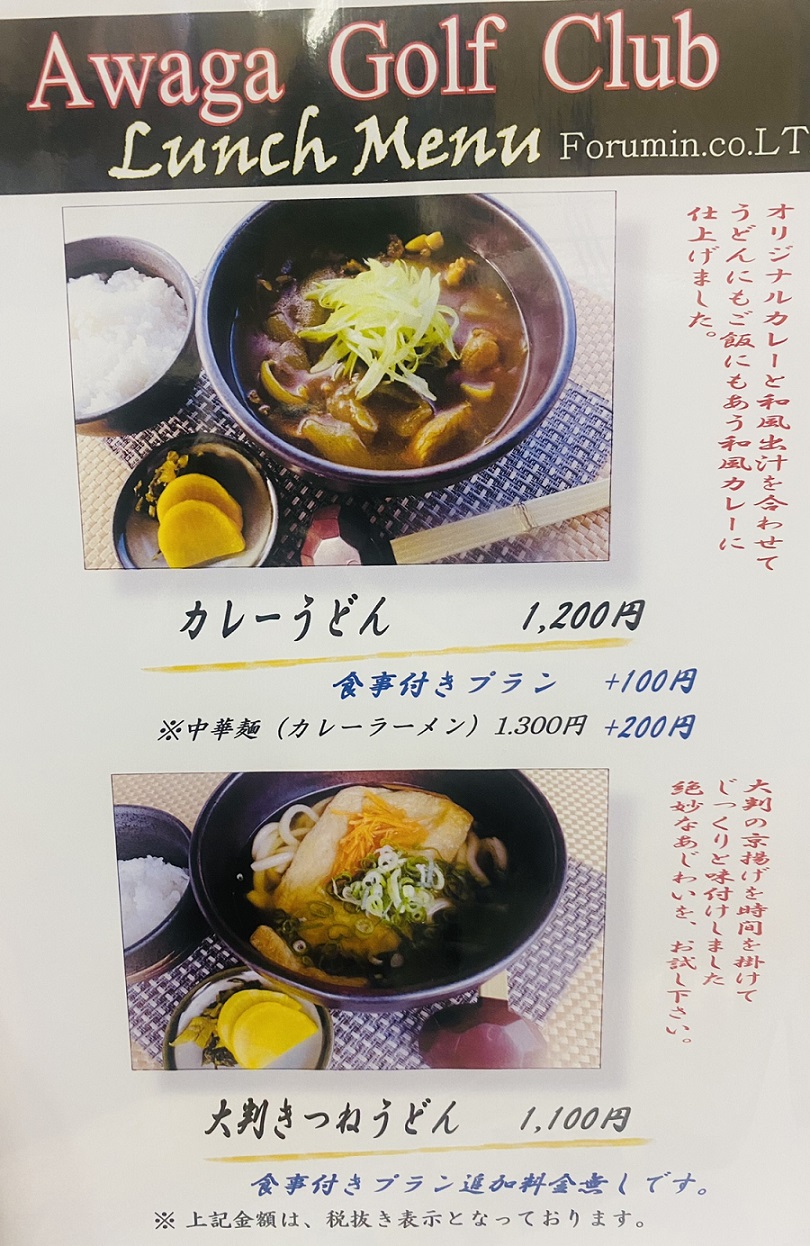 Awaga Golf Club
Lunch Menu Forumin.co.LT
オリジナルカレーと和風出汁を合わせて
うどんにもご飯にもあう和風カレーに
仕上げました。
カレーうどん 1,200円
食事付きプラン +100円
※中華麺（カレーラーメン）1.300円 +200円
大判の京揚げを時間を掛けて
じっくりと味付けしました
絶妙なあじわいを、お試し下さい。
大判きつねうどん 1,100円
食事付きプラン追加料金無しです。
※ 上記金額は、税抜き表示となっております。